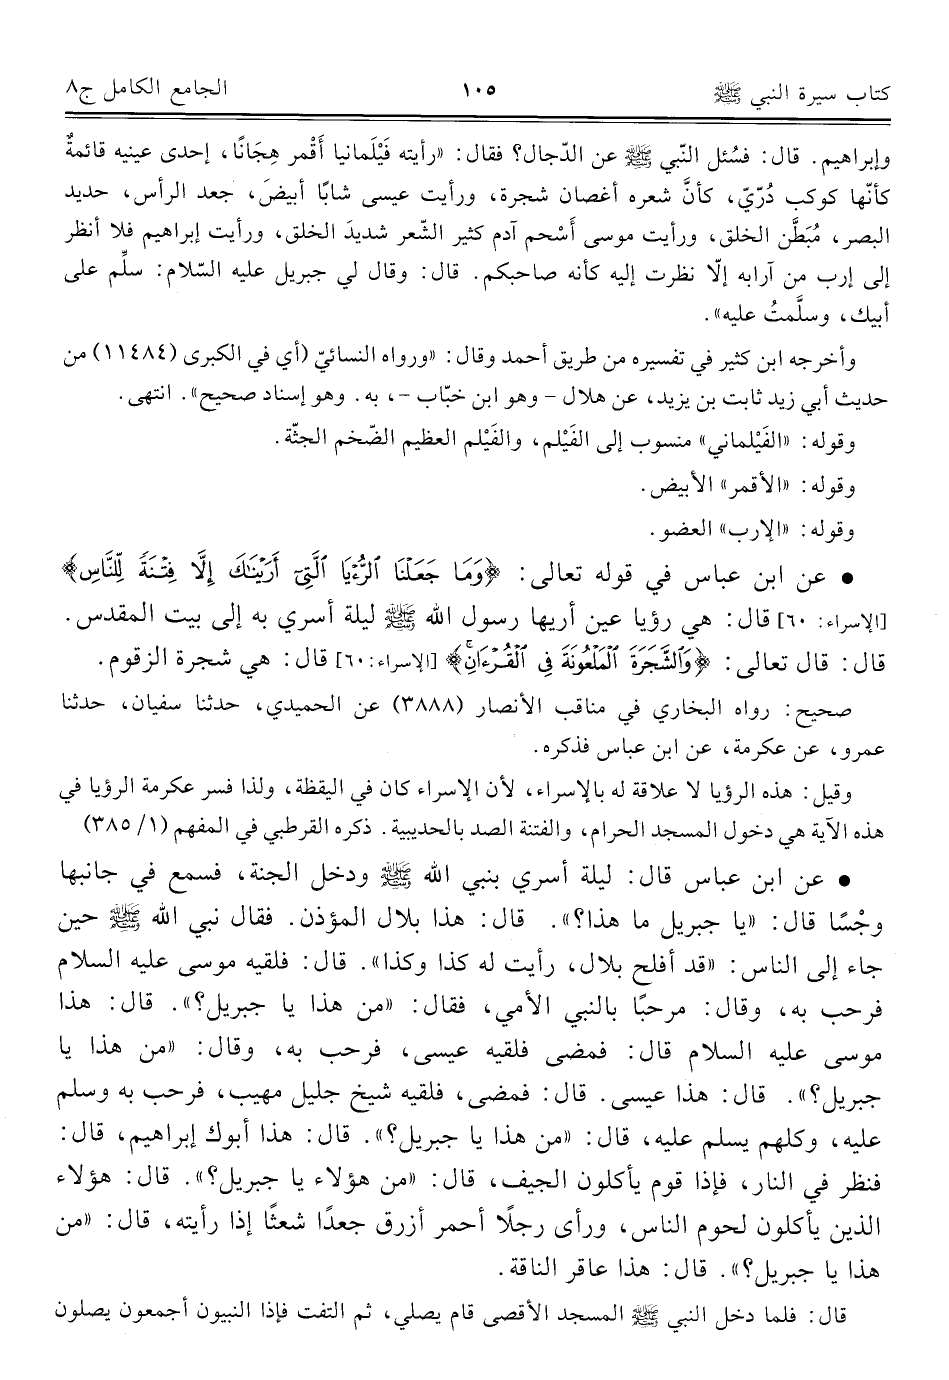 كتاب سيرة النبي ﷺ ١٠٥ الجامع الكامل ج٨
وإبراهيم. قال: فسُئل النّبي ﷺ عن الدّجال؟ فقال: «رأيته فَيْلَمانيا أَقْمر هِجَانًا، إحدى عينيه قائمةٌ
كأنّها كوكب دُرّيّ، كأنَّ شعره أغصان شجرة، ورأيت عيسى شابًا أبيضَ، جعد الرأس، حديد
البصر، مُبَطَّن الخلق، ورأيت موسى أَسْحم آدم كثير الشّعر شديدَ الخلق، ورأيت إبراهيم فلا أنظر
إلى إرب من آرابه إلّا نظرت إليه كأنه صاحبكم. قال: وقال لي جبريل عليه السّلام: سلِّم على
أبيك، وسلَّمتُ عليه».
وأخرجه ابن كثير في تفسيره من طريق أحمد وقال: «ورواه النسائيّ (أي في الكبرى (١١٤٨٤) من
حديث أبي زيد ثابت بن يزيد، عن هلال - وهو ابن خبّاب -، به. وهو إسناد صحيح». انتهى.
وقوله: «الفَيْلماني» منسوب إلى الفَيْلم، والفَيْلم العظيم الضّخم الجثّة.
وقوله: «الأقمر» الأبيض.
وقوله: «الإرب» العضو.
• عن ابن عباس في قوله تعالى: ﴿وَمَا جَعَلْنَا ٱلرُّءْيَا ٱلَّتِىٓ أَرَيْنَٰكَ إِلَّا فِتْنَةً لِّلنَّاسِ﴾
[الإسراء: ٦٠] قال: هي رؤيا عين أريها رسول الله ﷺ ليلة أسري به إلى بيت المقدس.
قال: قال تعالى: ﴿وَٱلشَّجَرَةَ ٱلْمَلْعُونَةَ فِى ٱلْقُرْءَانِ﴾ [الإسراء: ٦٠] قال: هي شجرة الزقوم.
صحيح: رواه البخاري في مناقب الأنصار (٣٨٨٨) عن الحميدي، حدثنا سفيان، حدثنا
عمرو، عن عكرمة، عن ابن عباس فذكره.
وقيل: هذه الرؤيا لا علاقة له بالإسراء، لأن الإسراء كان في اليقظة، ولذا فسر عكرمة الرؤيا في
هذه الآية هي دخول المسجد الحرام، والفتنة الصد بالحديبية. ذكره القرطبي في المفهم (١/ ٣٨٥)
• عن ابن عباس قال: ليلة أسري بنبي الله ﷺ ودخل الجنة، فسمع في جانبها
وجْسًا قال: «يا جبريل ما هذا؟». قال: هذا بلال المؤذن. فقال نبي الله ﷺ حين
جاء إلى الناس: «قد أفلح بلال، رأيت له كذا وكذا». قال: فلقيه موسى عليه السلام
فرحب به، وقال: مرحبًا بالنبي الأمي، فقال: «من هذا يا جبريل؟». قال: هذا
موسى عليه السلام قال: فمضى فلقيه عيسى، فرحب به، وقال: «من هذا يا
جبريل؟». قال: هذا عيسى. قال: فمضى، فلقيه شيخ جليل مهيب، فرحب به وسلم
عليه، وكلهم يسلم عليه، قال: «من هذا يا جبريل؟». قال: هذا أبوك إبراهيم، قال:
فنظر في النار، فإذا قوم يأكلون الجيف، قال: «من هؤلاء يا جبريل؟». قال: هؤلاء
الذين يأكلون لحوم الناس، ورأى رجلًا أحمر أزرق جعدًا شعثًا إذا رأيته، قال: «من
هذا يا جبريل؟». قال: هذا عاقر الناقة.
قال: فلما دخل النبي ﷺ المسجد الأقصى قام يصلي، ثم التفت فإذا النبيون أجمعون يصلون